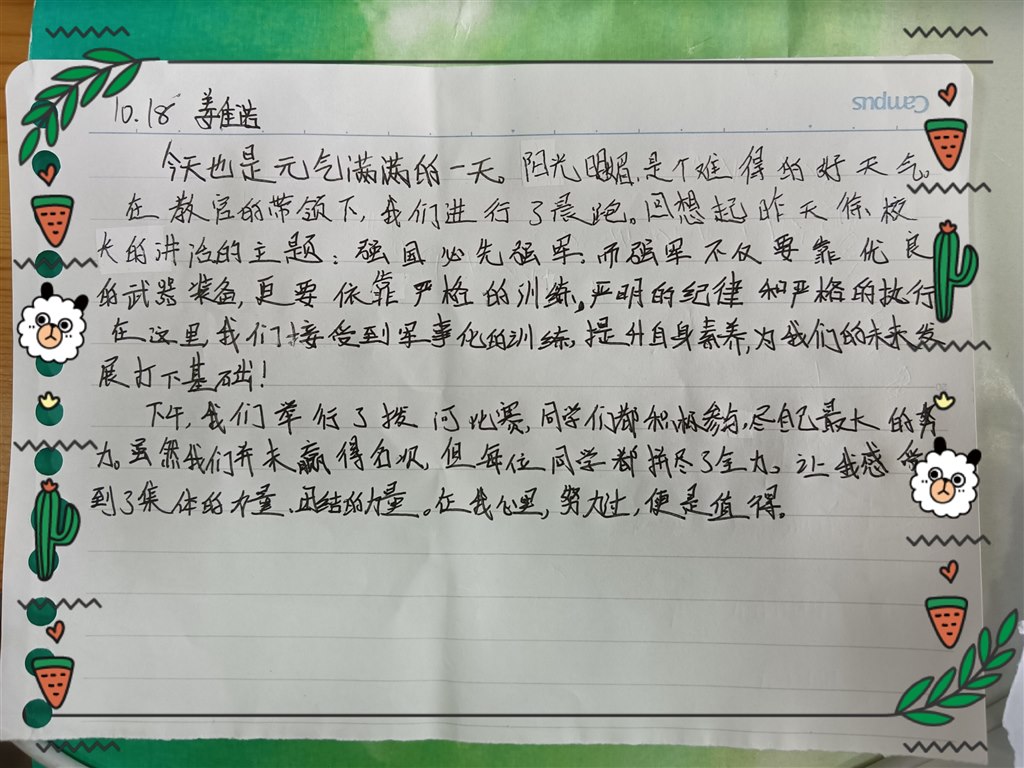 Campus
10.18 姜隹浩
今天也是元气满满的一天。阳光明媚,是个难得的好天气。
在教官的带领下,我们进行了晨跑。回想起昨天徐校
长的讲话的主题:强国必先强军。而强军不仅要靠优良
的武器装备,更要依靠严格的训练,严明的纪律和严格的执行
在这里,我们接受到军事化的训练,提升自身素养,为我们的未来发
展打下基础!
下午,我们举行了拨河比赛,同学们都积极参与,尽自己最大的努
力。虽然我们并未赢得名次,但每位同学都拼尽了全力。让我感受
到了集体的力量、团结的力量。在我心里,努力过,便是值得。